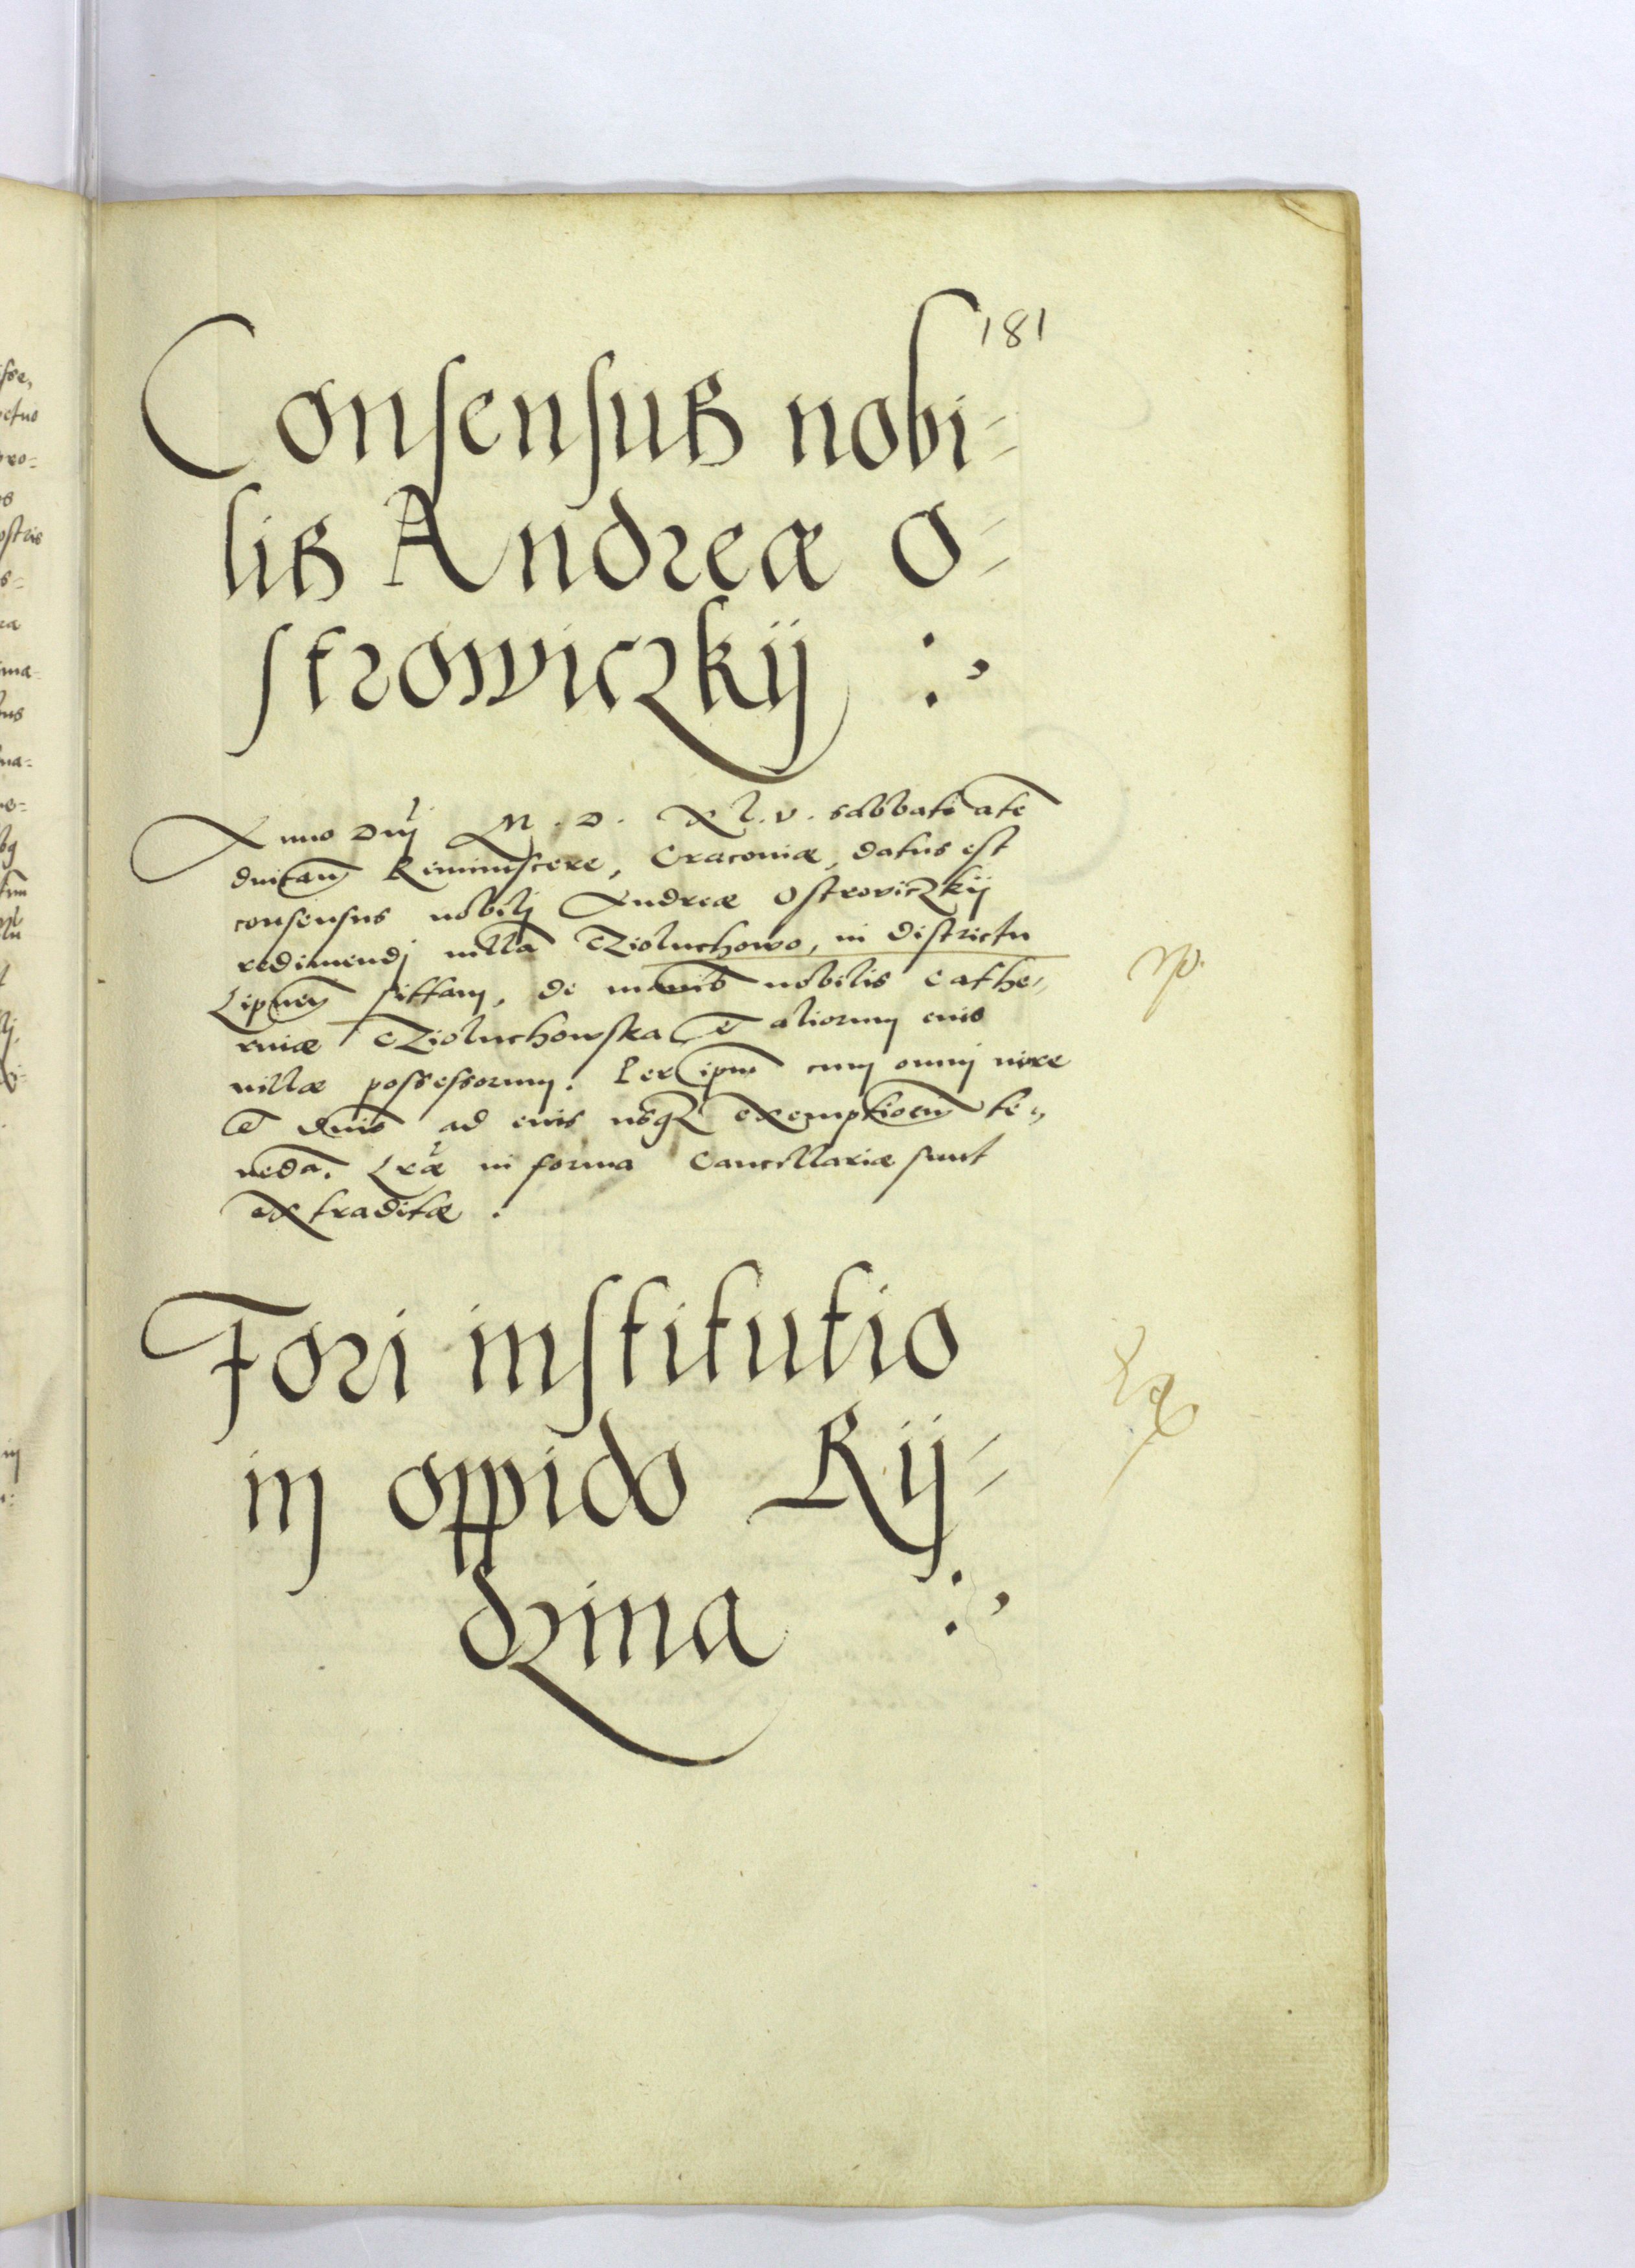 181
Consensus nobi-
lis Andreæ O-
strowiczkij
Anno Dnj M. D. Xl. v. sabbato ate
dnicam Reminiscere, Cracoviæ, datus est
consensus nobilj Andreæ Ostroviczkij
redimendj villa CZioluchowo, in districtu
Lipnen sittam, de manib nobilis Cathe-
rinæ CZioluchowska et aliorum eius
villæ possessorum. Per ipm cum omnj iure
et dnio ad eius usq exemptioem te-
neda. Lræ in forma Cancellariæ sunt
extraditæ.
Fori institutio
in oppido Rij-
dzina